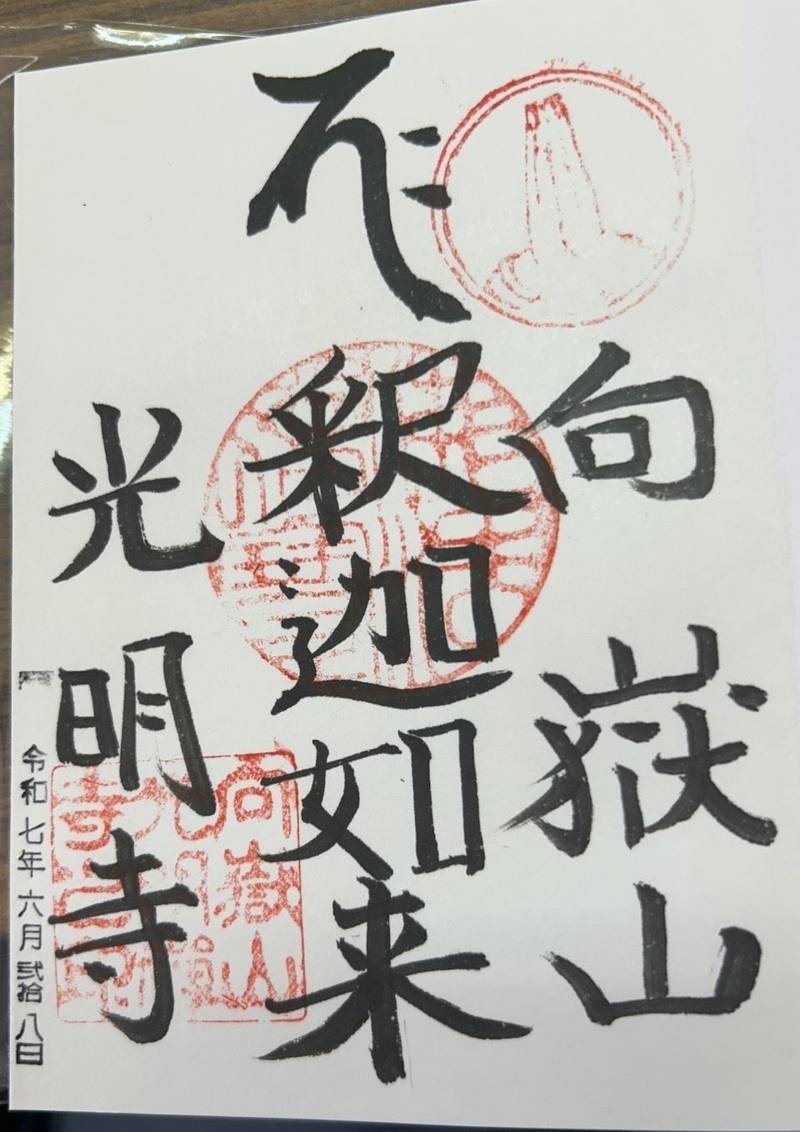 向嶽山
𑖥𑖾
釈迦如来
光明寺
令和七年六月弐拾八日
向嶽山